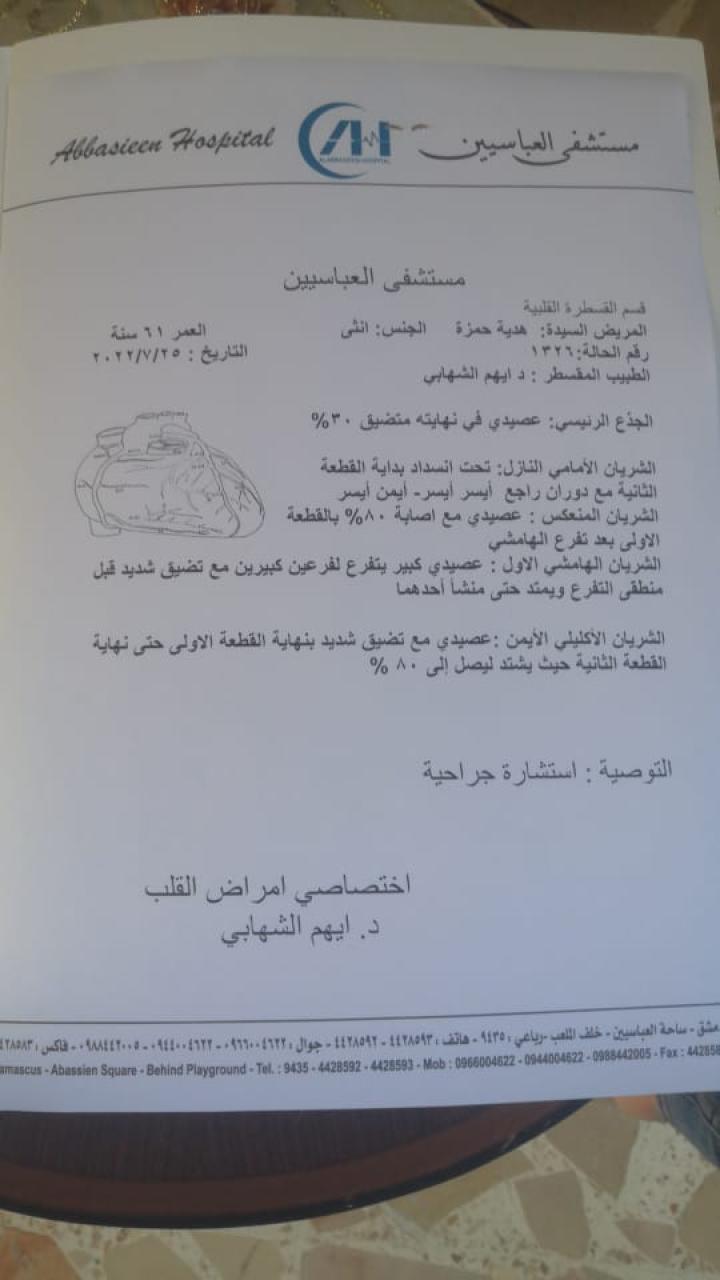 Abbasieen Hospital
AH
ALABBASIEEN HOSPITAL
مستشفى العباسيين
مستشفى العباسيين
قسم القسطرة القلبية
المريض السيدة: هدية حمزة الجنس: انثى العمر ٦١ سنة
رقم الحالة:١٣٢٦ التاريخ : ٢٠٢٢/٧/٢٥
الطبيب المقسطر : د ايهم الشهابي
الجذع الرئيسي: عصيدي في نهايته متضيق ٣٠%
الشريان الأمامي النازل: تحت انسداد بداية القطعة
الثانية مع دوران راجع أيسر أيسر- أيمن أيسر
الشريان المنعكس : عصيدي مع اصابة ٨٠% بالقطعة
الاولى بعد تفرع الهامشي
الشريان الهامشي الاول : عصيدي كبير يتفرع لفرعين كبيرين مع تضيق شديد قبل
منطقى التفرع ويمتد حتى منشأ أحدهما
الشريان الأكليلي الأيمن :عصيدي مع تضيق شديد بنهاية القطعة الاولى حتى نهاية
القطعة الثانية حيث يشتد ليصل إلى ٨٠ %
التوصية : استشارة جراحية
اختصاصي امراض القلب
د. ايهم الشهابي
مشق - ساحة العباسيين - خلف الملعب -رباعي : ٩٤٣٥ - هاتف : ٤٤٢٨٥٩٣ - ٤٤٢٨٥٩٢ - جوال : ٠٩٦٦٠٠٤٦٢٢ - ٠٩٤٤٠٠٤٦٢٢ - ٠٩٨٨٤٤٢٠٠٥ - فاكس : ٤٢٨٥٨٣
amascus - Abassien Square - Behind Playground - Tel. : 9435 - 4428592 - 4428593 - Mob : 0966004622 - 0944004622 - 0988442005 - Fax : 442858